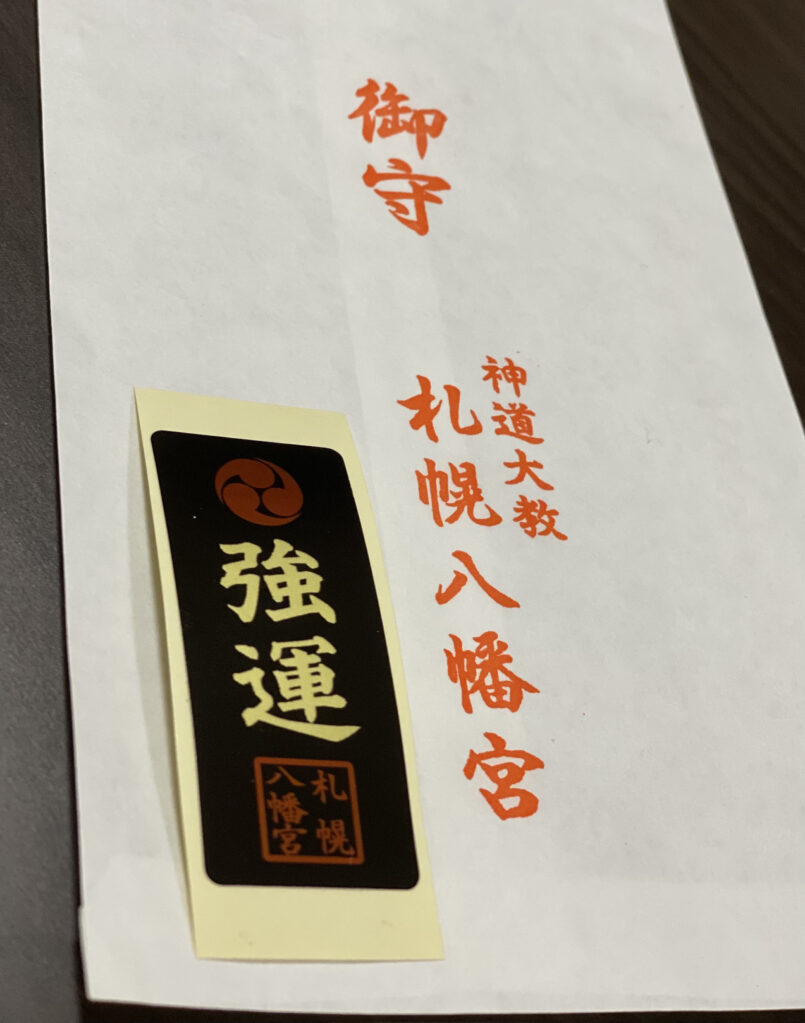 御守
神道大教
札幌八幡宮
強運
札幌
八幡宮